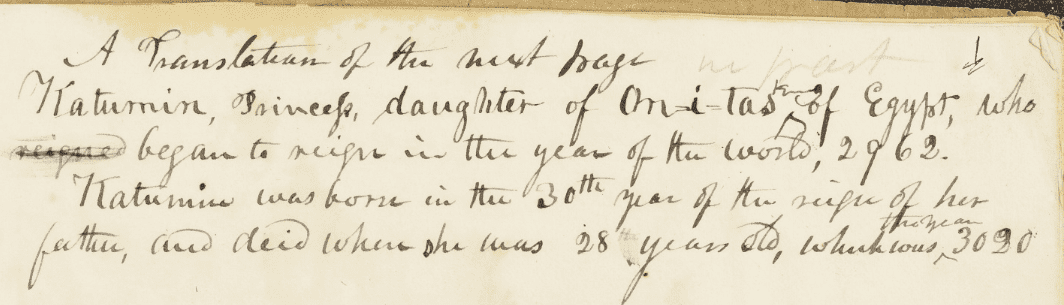 A Translation of the next page in part
Katumin, Princess, daughter of On-i-tas of Egypt, who
reigned began to reign in the year of the world, 2962.
Katumin was born in the 30th year of the reign of her
father, and deid when she was 28 years old, which was the year 3020